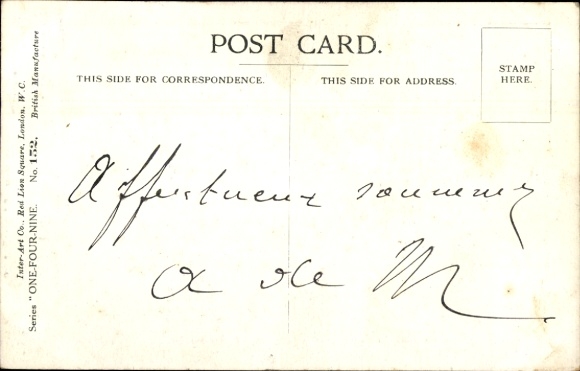 POST CARD.
THIS SIDE FOR CORRESPONDENCE.
THIS SIDE FOR ADDRESS.
STAMP
HERE.
Inter-Art Co., Red Lion Square, London, W.C.
Series "ONE-FOUR-NINE. No. 152. British Manufacture
Affectueux souvenir
A de M